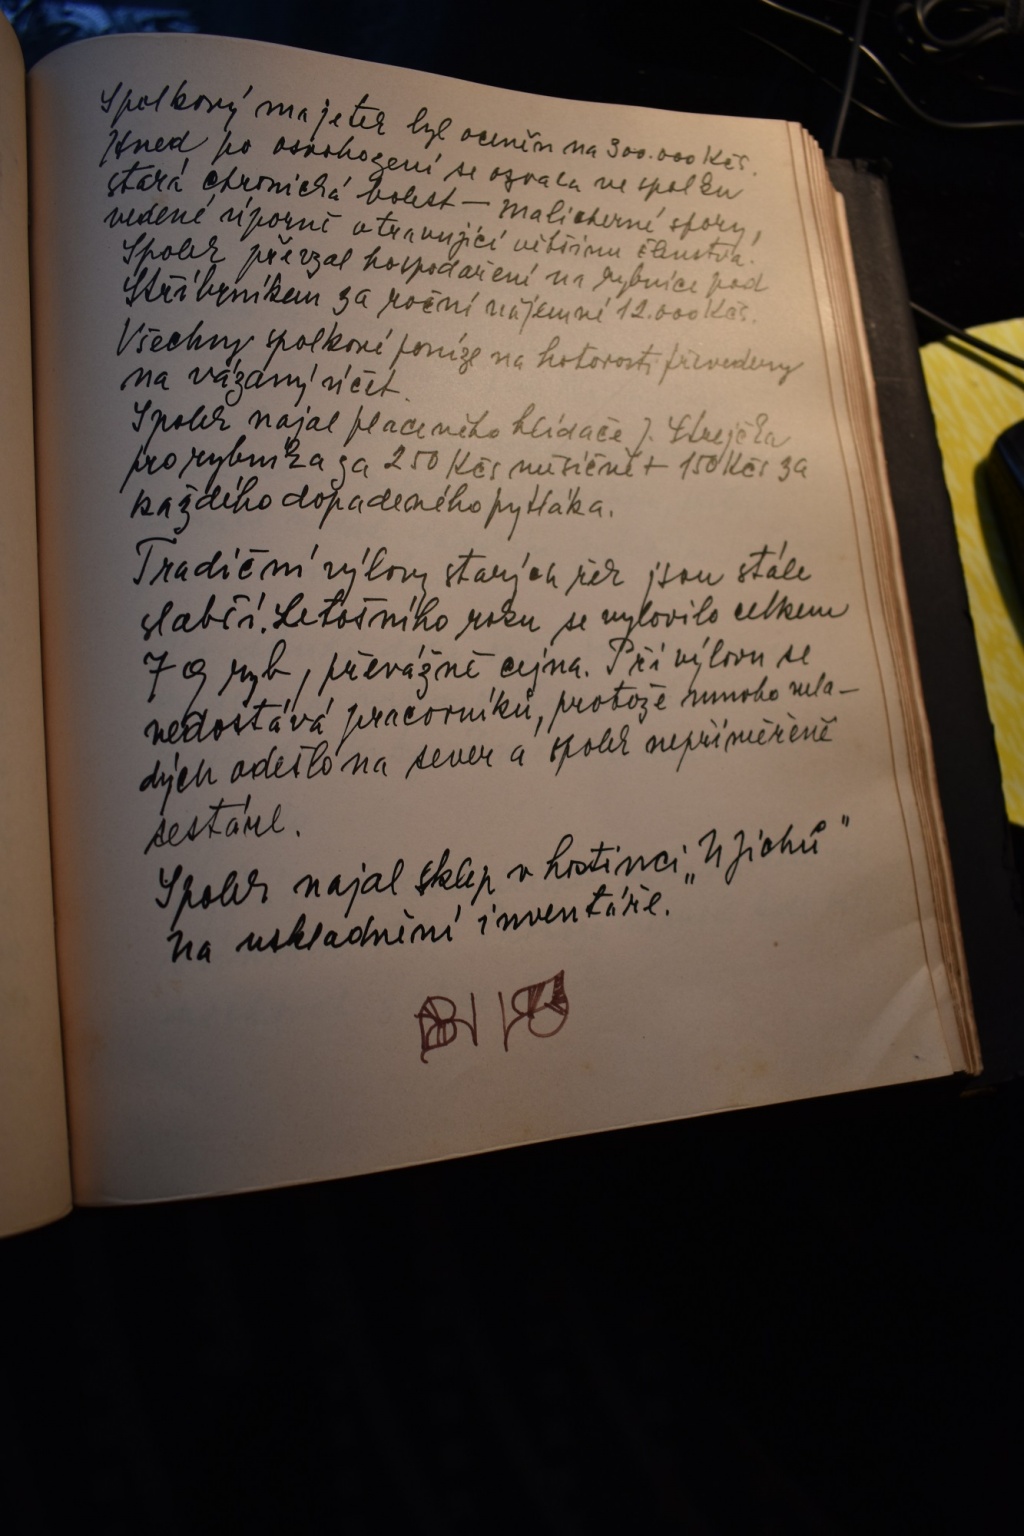 Spolkový majetek byl oceněn na 300.000 Kčs.
Hned po osvobození se ozvala ve spolku
stará chronická bolest — malicherné spory,
vedené úporně otravující většinu členstva.
Spolek převzal hospodaření na rybníce pod
Stříbrníkem za roční nájemné 12.000 Kčs.
Všechny spolkové peníze na hotovosti převedeny
na vázaný účet.
Spolek najal placeného hlídače J. Strejčka
pro rybníka za 250 Kčs měsíčně + 150 Kčs za
každého dopadeného pytláka.
Tradiční výlovy starých řek jsou stále
slabší. Letošního roku se vylovilo celkem
7 q ryb, převážně cejna. Při výlovu se
nedostává pracovníků, protože mnoho mla-
dých odešlo na sever a spolek nepřiměřeně
sestárl.
Spolek najal sklep v hostinci „U Jichů"
na uskladnění inventáře.